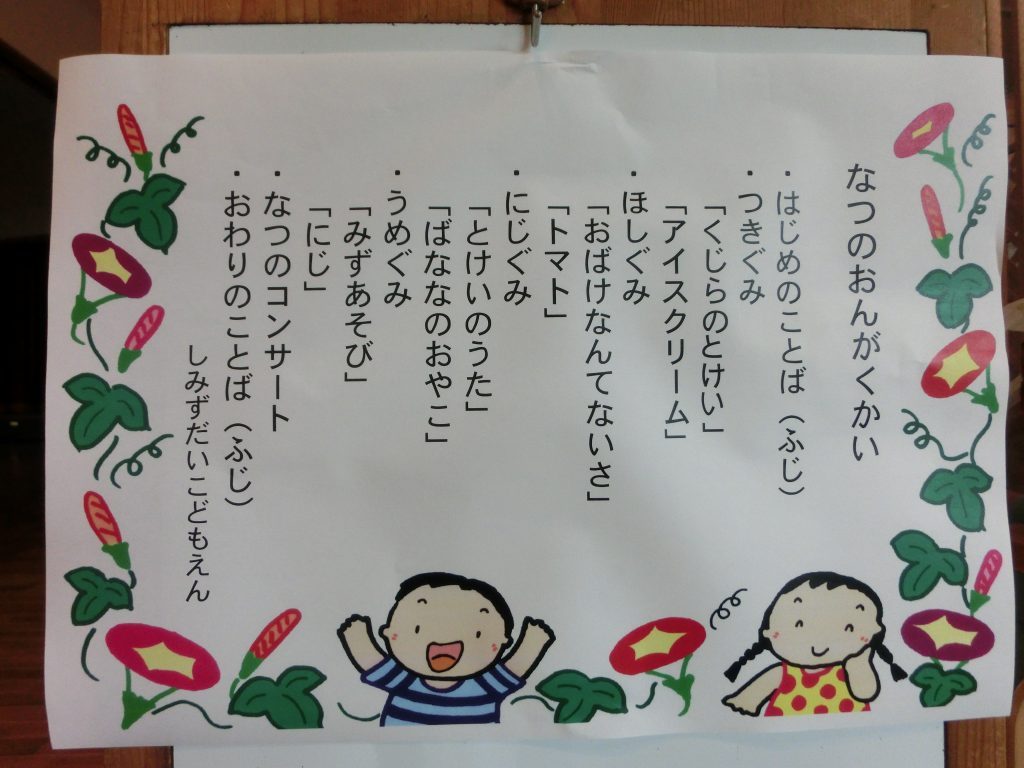 なつのおんがくかい
・はじめのことば（ふじ）
・つきぐみ
「くじらのとけい」
「アイスクリーム」
・ほしぐみ
「おばけなんてないさ」
「トマト」
・にじぐみ
「とけいのうた」
「ばななのおやこ」
・うめぐみ
「みずあそび」
「にじ」
・なつのコンサート
・おわりのことば（ふじ）
しみずだいこどもえん